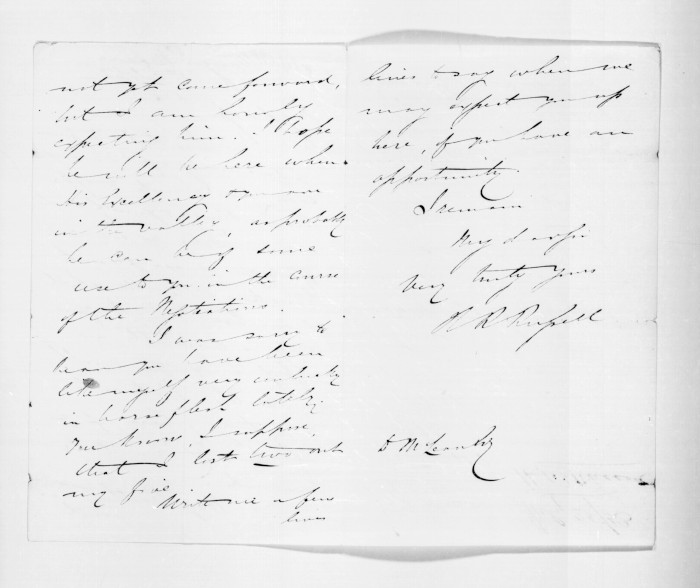 not yet come forward,
but I am hourly
expecting him. I hope
he will be here when
His Excellency & you are
in the valley, as probably
he can be of some
use to you in the course
of the Negotiations.
I was sorry to
hear you have been
like myself very unlucky
in horse flesh lately.
You know, I suppose,
that I lost two out
my five
Write me a few
lines
lines to say when we
may expect you up
here, if you have an
opportunity.
I remain
My d sir
Very truly yours
H R Russell
D McLean Esq